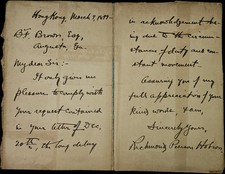 Hong Kong, March 7, 1899
B.F. Brown, Esq,
Augusta, Ga.
My dear Sir:-
It only gives me
pleasure to comply with
your request contained
in your letter of Dec.
20th, the long delay
in acknowledgement be-
ing due to the circum-
stances of duty and con-
stant movement.
Assuring you of my
full appreciation of your
kind words I am,
Sincerely Yours,
Richmond Pearson Hobson